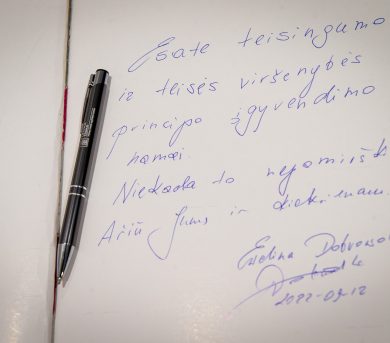 Esate teisingumo
ir teisės viršenybės
principo įgyvendimo
namai.
Niekada to nepamirški
Ačiū Jums ir kiekvienam
Evelina Dobrovol
2022-09-12